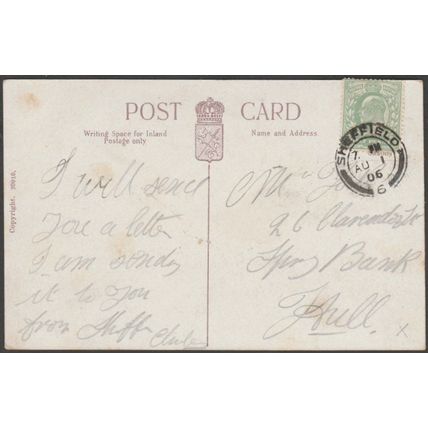 POST CARD
Writing Space for Inland
Postage only
Name and Address.
Copyright.
SHEFFIELD
7
AU 1
06
6
I will send
you a letter
I am sending
it to you
from Sheff
26 Clarendon St
Spring Bank
Hull
x